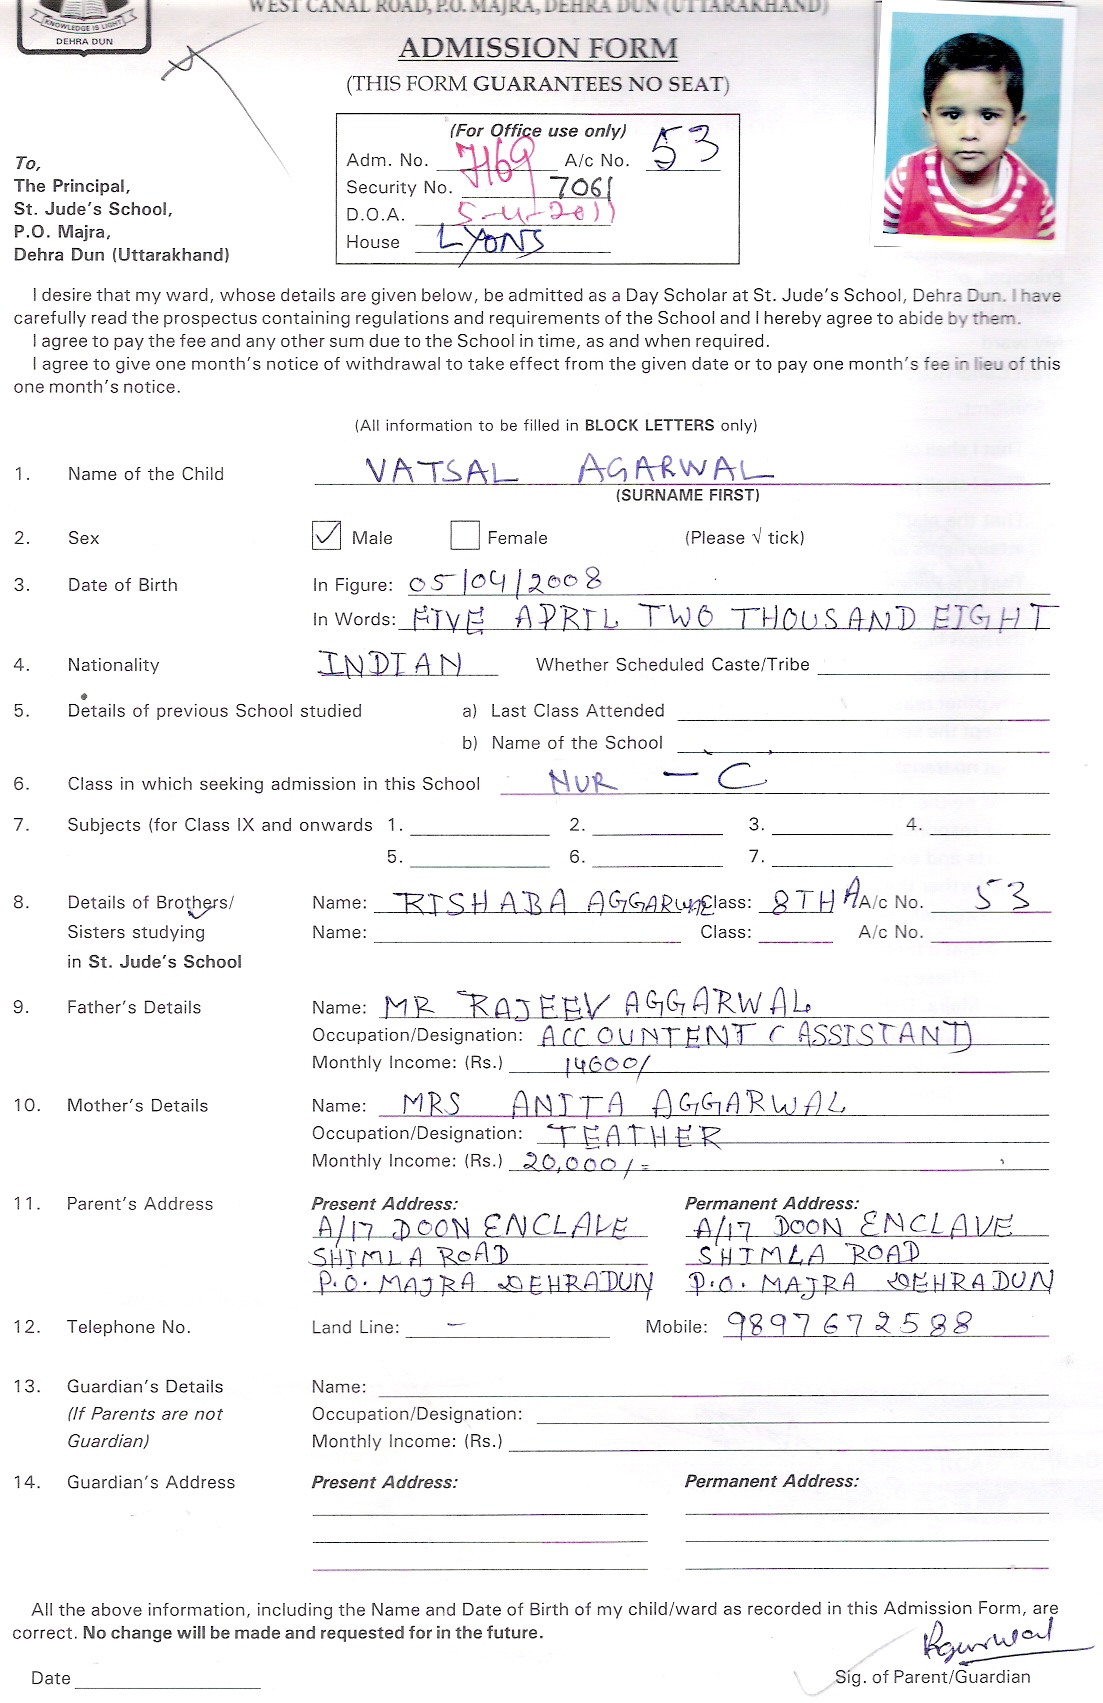 WEST CANAL ROAD, P.O. MAJRA, DEHRA DUN (UTTARAKHAND)
KNOWLEDGE IS LIGHT
DEHRA DUN
ADMISSION FORM
(THIS FORM GUARANTEES NO SEAT)
(For Office use only)
Adm. No. 7169 A/c No. 53
Security No. 7061
D.O.A. 5-4-2011
House LYONS
To,
The Principal,
St. Jude's School,
P.O. Majra,
Dehra Dun (Uttarakhand)
I desire that my ward, whose details are given below, be admitted as a Day Scholar at St. Jude's School, Dehra Dun. I have
carefully read the prospectus containing regulations and requirements of the School and I hereby agree to abide by them.
I agree to pay the fee and any other sum due to the School in time, as and when required.
I agree to give one month's notice of withdrawal to take effect from the given date or to pay one month's fee in lieu of this
one month's notice.
(All information to be filled in BLOCK LETTERS only)
1. Name of the Child VATSAL AGARWAL
(SURNAME FIRST)
2. Sex ✓ Male Female (Please √ tick)
3. Date of Birth In Figure: 05/04/2008
In Words: FIVE APRIL TWO THOUSAND EIGHT
4. Nationality INDIAN Whether Scheduled Caste/Tribe
5. Details of previous School studied a) Last Class Attended
b) Name of the School
6. Class in which seeking admission in this School NUR - C
7. Subjects (for Class IX and onwards 1. 2. 3. 4.
5. 6. 7.
8. Details of Brothers/ Name: RISHABA AGGARWAL Class: 8TH A A/c No. 53
Sisters studying Name: Class: A/c No.
in St. Jude's School
9. Father's Details Name: MR RAJEEV AGGARWAL
Occupation/Designation: ACCOUNTENT (ASSISTANT)
Monthly Income: (Rs.) 14600/
10. Mother's Details Name: MRS ANITA AGGARWAL
Occupation/Designation: TEATHER
Monthly Income: (Rs.) 20,000/=
11. Parent's Address Present Address: Permanent Address:
A/17 DOON ENCLAVE A/17 DOON ENCLAVE
SHIMLA ROAD SHIMLA ROAD
P.O. MAJRA DEHRADUN P.O. MAJRA DEHRADUN
12. Telephone No. Land Line: - Mobile: 9897672588
13. Guardian's Details Name:
(If Parents are not Occupation/Designation:
Guardian) Monthly Income: (Rs.)
14. Guardian's Address Present Address: Permanent Address:
All the above information, including the Name and Date of Birth of my child/ward as recorded in this Admission Form, are
correct. No change will be made and requested for in the future.
Ragarwal
Date Sig. of Parent/Guardian